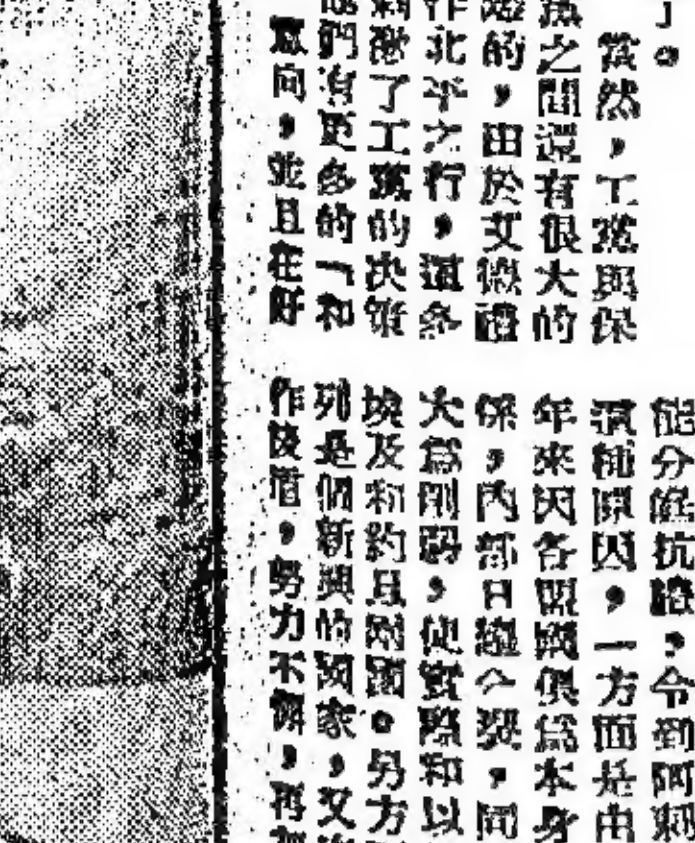 」。
當然,工黨與保
之間還有很大的
的,由於艾
北平之行,這多
了工黨的决策
們有更多的「和
意向,並且在好
能分庭抗禮,令到阿剌
這種原因,一方面是由
年來因各盟國俱爲本身
係,內部日趨分裂,同
大爲削弱,使實際和以
埃及和約且剛簽。另方
列是個新興的國家,又
作後盾,努力不懈,再